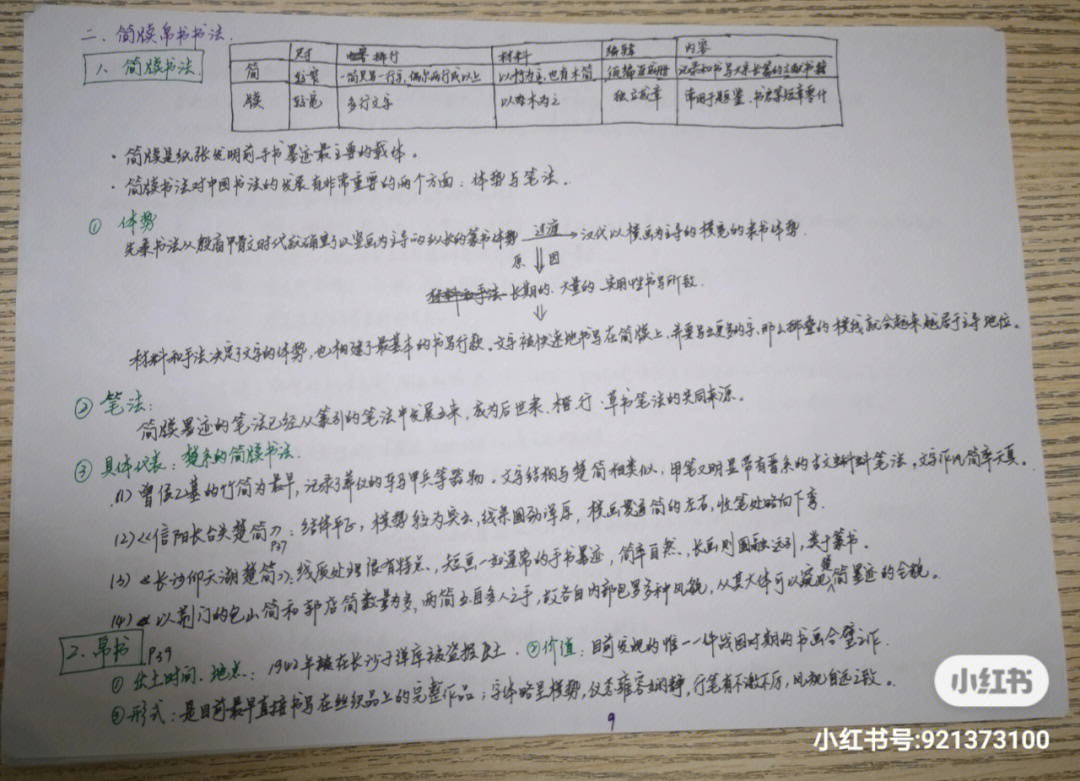 二、简牍帛书书法.
1、简牍书法.
尺寸 排行 材料 编辑 内容
简 较窄 一简只写一行字,偶尔两行或以上 以竹为主,也有木简 须编互成册
牍 较宽 多行文字 以木为主 独立成章 常用于题鉴、书启等短章零什
· 简牍是纸张发明前手书墨迹最主要的载体。
· 简牍书法对中国书法的发展有非常重要的两个方面:体势与笔法.
① 体势
先秦书法从殷商甲骨文时代就确立了以竖画为主导的纵长的篆书体势 过渡→ 汉代以横画为主导的横宽的隶书体势.
原 ⇓ 因
材料和手法 长期的、大量的、实用性书写所致.
⇓
材料和手法决定了文字的体势,也构建了最基本的书写行款。文字被快速地书写在简牍上,并要写更多的字,那么排叠的横线就会越来越居于主导地位。
② 笔法:
简牍墨迹的笔法已经从篆引的笔法中发展出来,成为后世隶、楷、行、草书笔法的共同来源。
③ 具体代表:楚系的简牍书法.
(1) 曾侯乙墓的竹简为最早,记录了葬仪的车马甲兵等器物。文字结构与楚简相类似,用笔又明显带有晋系的古文蝌蚪笔法,文字作风简率天真。
(2)《信阳长台关楚简》P37:结体平正,横势较为突出,线条圆劲浑厚,横画贯通简的左右,收笔处略向下弯.
(3)《长沙仰天湖楚简》:线质处理很有特点,短画一如通常的手书墨迹,简率自然、长画则圆融运引,类于篆书。
(4) 以荆门的包山简和郭店简数量为多,两简出自多人之手,故各自内部包罗多种风貌,从其大体可以窥见楚简墨迹的全貌。
2、帛书 P39
① 出土时间、地点:1942年被在长沙子弹库被盗掘出土. ②价值:目前发现的唯一一件战国时期的书画合璧之作.
③形式:是目前最早直接书写在丝织品上的完整作品;字体略呈横势,仪态雍容娴静,行笔有不激不厉,风规自远之致。
9
小红书
小红书号:921373100